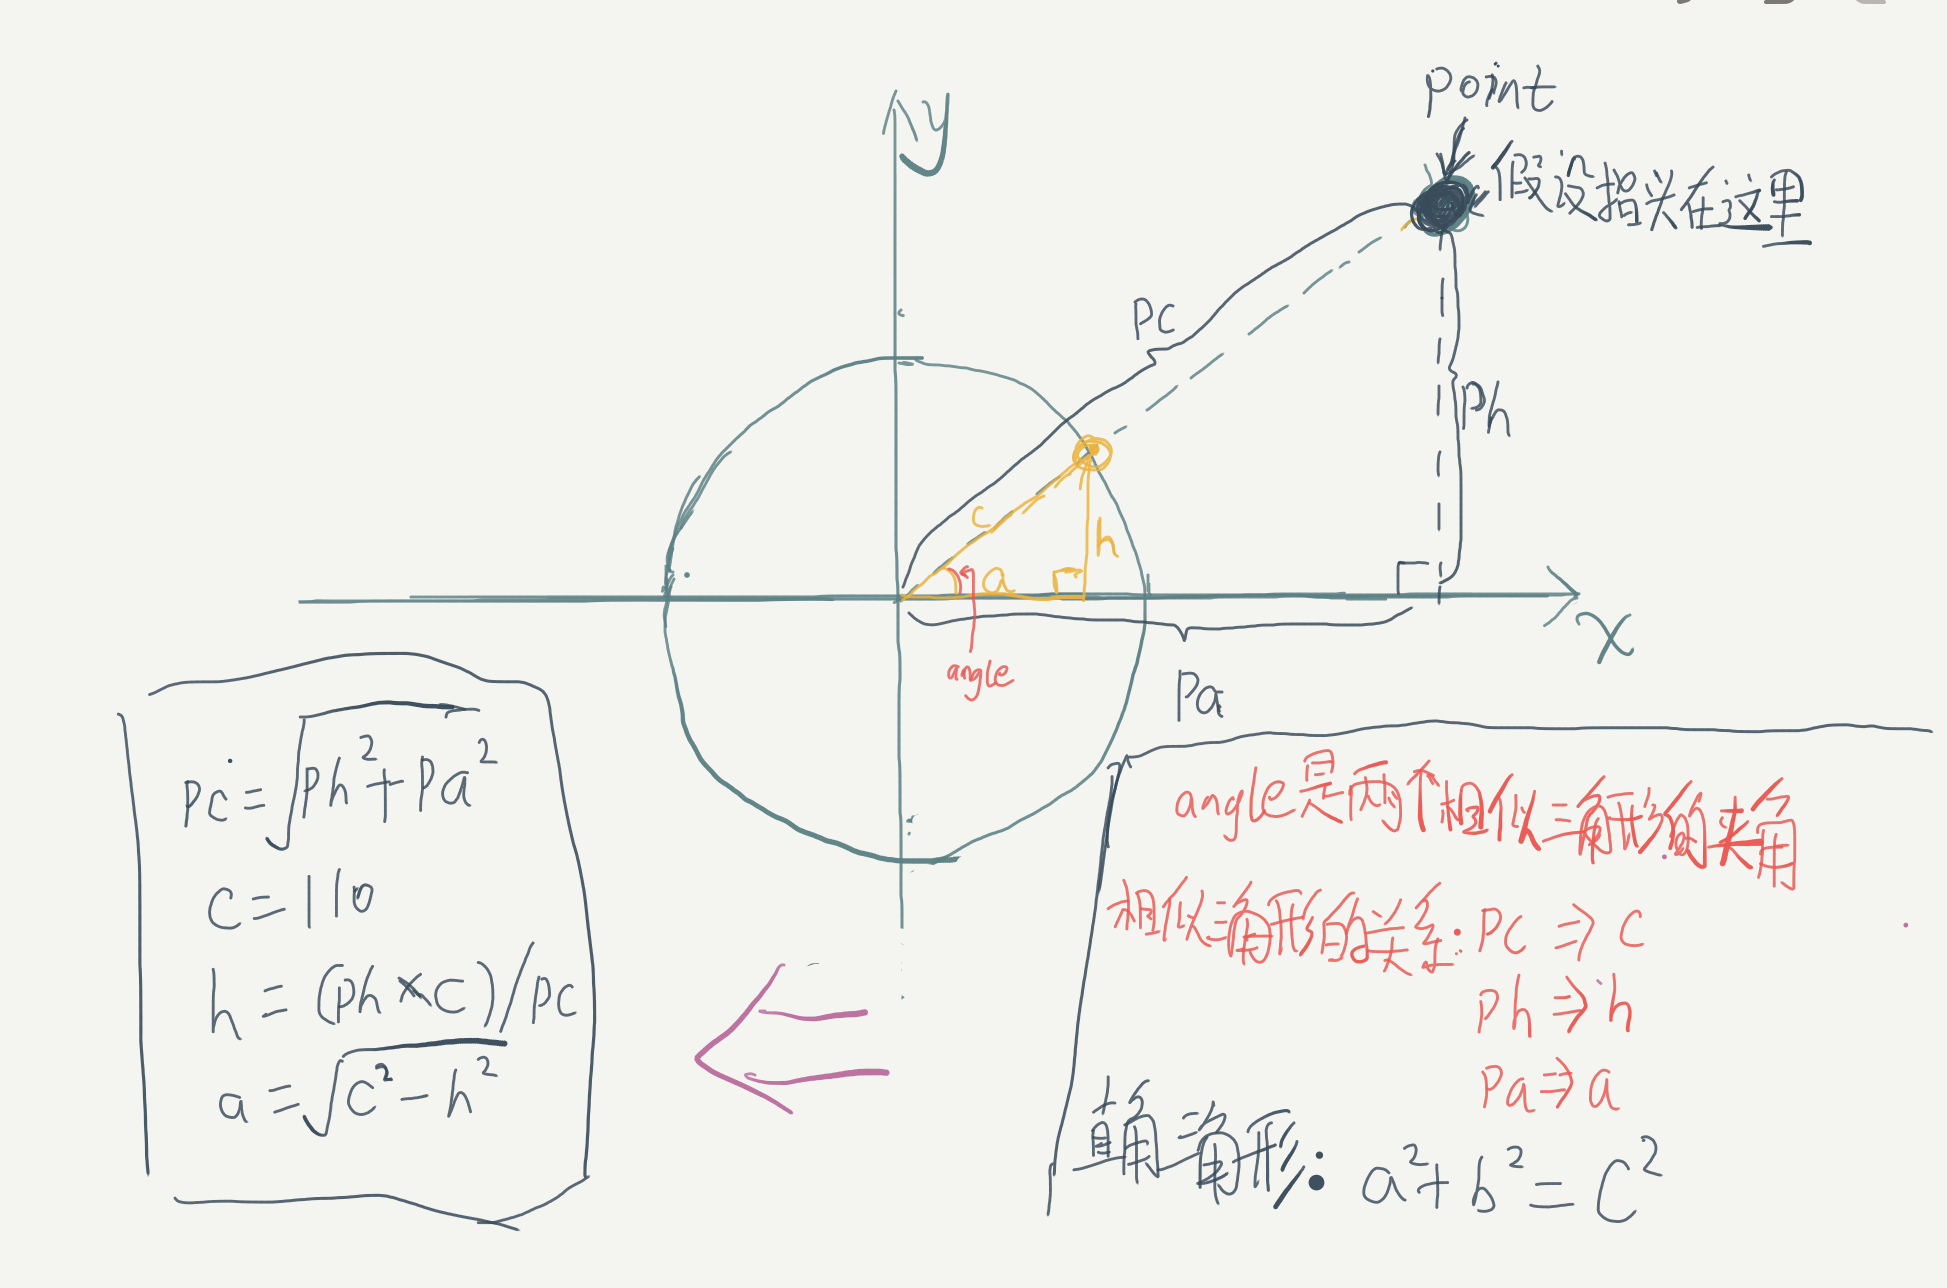 y
point
假设指头在这里
pc
ph
c
h
a
angle
x
Pa
pc = √ph²+pa²
c = 110
h = (ph × c) / pc
a = √c² - h²
angle是两个相似三角形的夹角
相似三角形的关系: pc ⇒ c
ph ⇒ h
Pa ⇒ a
直角三角形: a² + b² = c²